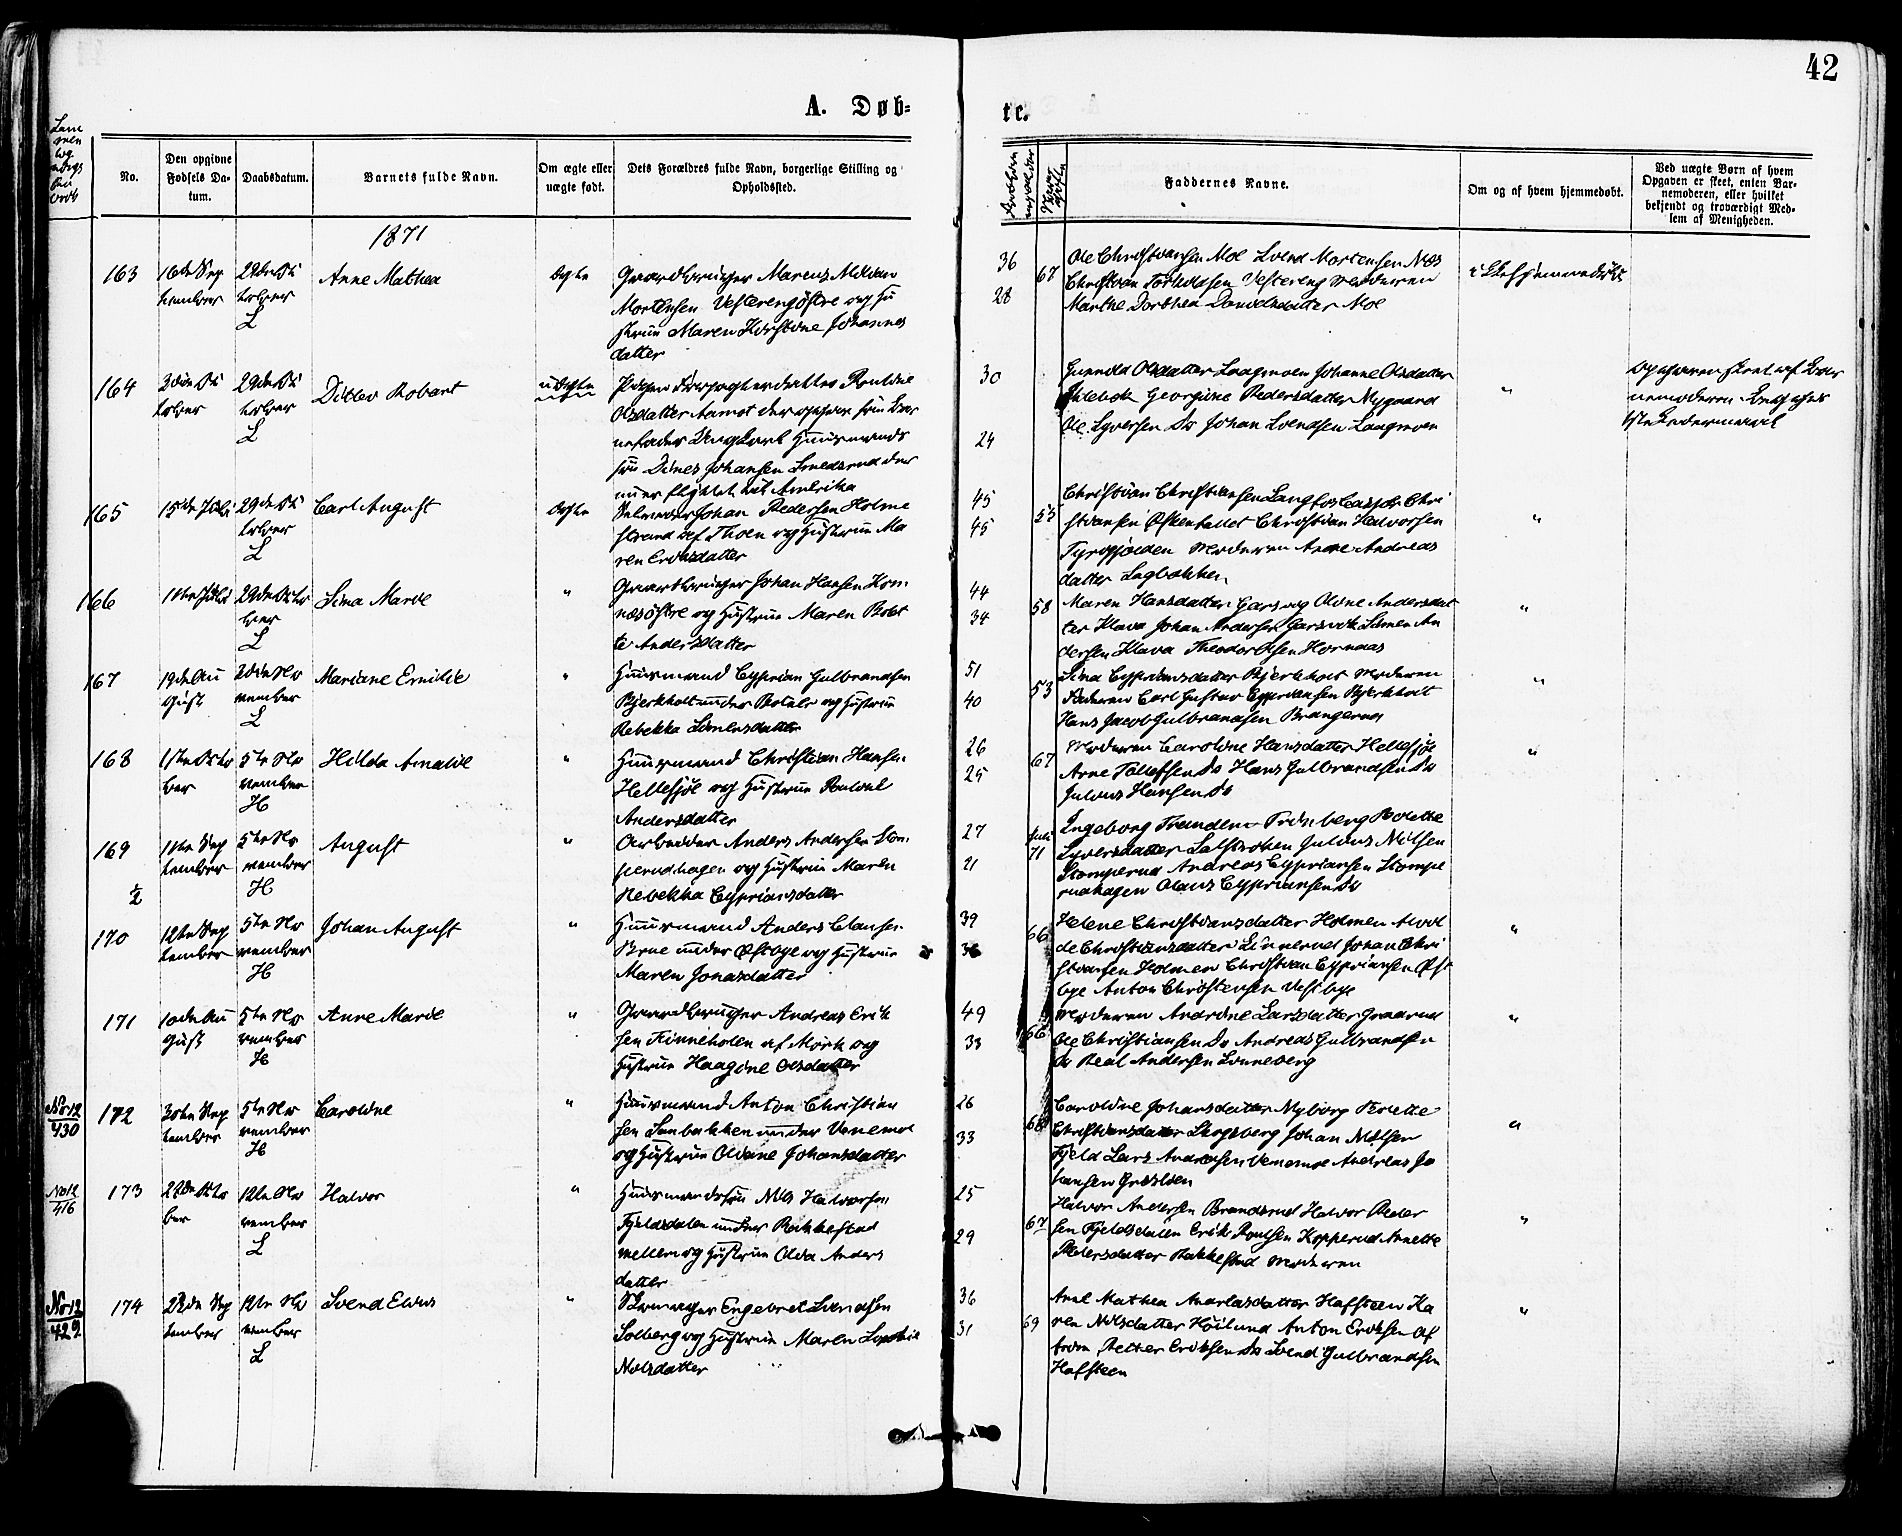 42
A. Døb-
te.
No.
Den opgivne
Fødsels Da-
tum.
Daabsdatum.
Barnets fulde Navn.
Om ægte eller
uægte født.
Dets Forældres fulde Navn, borgerlige Stilling og
Opholdssted.
Faddernes Navne.
Om og af hvem hjemmedøbt.
Ved uægte Børn af hvem
Opgaven er skeet, enten Bar-
nemoderen, eller hvilket
bekjendt og troværdigt Med-
lem af Menigheden.
1871
163
16de Sep
tember
29de Ok
tober
L
Anne Mathea
Ægte
Gaardbruger Marens Milian
Mortensen Vesterengøstre og Hu
strue Maren Kirstine Johannes
datter
36
28
67
Ole Christiansen Moe Svend Mortensen Næs
Christian Torkildsen Vestereng Moderen
Marthe Dorthea Danielsdatter Moe
ikke hjemmedøbt
164
3die Ok
tober
29de Ok
tober
L
Ditlev Robart
uÆgte
Pigen
Olsdatter Aamot der opgiver som Bar
nefader Ungkarl Huusmands
søn Dines Johansen Smedsrud der
nu er flyttet til Amerika
30
24
Gunnild Olsdatter Laagmoen Johanne Olsdatter
Georgine Pedersdatter Nygaard
Ole Syversen Do Johan Svendsen Laagmoen
"
Opgaven skeet af Bar
nemoderen
165
15de Juli
29de Ok
tober
L
Carl August
Ægte
Selveier Johan Pedersen Holme
strand af Thoen og Hustrue Ma
ren Eriksdatter
45
45
55
Christian Christiansen Langfos Casper Chri
stiansen Christian Halvorsen
Moderen Anne Andreas
datter Lagbakken
"
166
29de Octo
ber
L
Sina Marie
"
Gaardbruger Johan Hansen Hor
næsøstre og Hustrue Maren Bolet
te Andersdatter
44
34
58
Maren Hansdatter Garsvig Oline Andersdat
ter Klava Johan Andersen Garsvik Simen An
dersen Klava Theodor Olsen Hornæs
"
167
19de Au
gust
vember
L
Mariane Emilie
"
Huusmand Cyprian Gulbrandsen
Bjerkholt under Botner og Hustrue
Rebekka Simensdatter
51
40
53
Lina Cypriansdatter Bjerkholt Moderen
Faderen Carl Gustav Cypriansen Bjerkholt
Hans Jacob Gulbrandsen Brangerød
"
168
1ste Octo
ber
5te No
vember
H
Hilda Amalie
"
Huusmand Christian Hansen
Hellesjøe og Hustrue
Andersdatter
26
25
67
Moderen Caroline Hansdatter Hellesjøe
Arne Tollefsen Do Hans Gulbrandsen Do
Julius Hansen Do
"
169
11te Sep
tember
5te No
vember
H
August
"
Arbeider Anders Andersen Stom
perudhagen og Hustrue Maren
Rebekka Cypriansdatter
27
21
71
Ingeborg
Syversdatter Julius Nilsen
Stomperud Andreas Cypriansen Stompe
rudhagen Olaus Cypriansen Do
170
12te Sep
tember
5te No
vember
H
Johan August
"
Huusmand Anders Clausen
Brue under Østbye og Hustrue
Maren Jonasdatter
39
36
66
Helene Christiansdatter Holmen
de Christiansdatter Linnerud Johan Chri
stiansen Holmen Christian Cypriansen Øst
bye Anton Christensen Vestbye
"
171
10de Au
gust
5te No
vember
H
Anne Marie
"
Gaardbruger Andreas Erik
sen Kinneholen af Mørk og
Hustrue Haagine Olsdatter
49
38
66
Moderen Andrine Larsdatter Graarud
Ole Christiansen Do Andreas Gulbrandsen
Do Andersen Linneberg
"
No 12
430
172
30te Sep
tember
5te No
vember
H
Caroline
"
Huusmand Anton Christian
sen under Venemoe
og Hustrue Olivine Johansdatter
26
33
68
Caroline Johansdatter Nyborg
Christiansdatter Skogsberg Johan Nilsen
Fjeld Lars Andreasen Venemoe Andreas Jo
hansen
"
No 12
416
173
ber
12te No
vember
L
Halvor
"
Huusmandssøn Nils Halvorsen
Fjeldsdalen under Rakkestad
mellem og Hustrue Olea Anders
datter
25
29
67
Halvor Andersen Brandsrud Halvor Peder
sen Fjeldsdalen Erik Poulsen Kopperud Annette
Pedersdatter Rakkestad Moderen
"
No 12
429
174
22de Sep
tember
12te No
vember
L
Svend Elius
"
Skomager Engebret Svendsen
Solberg og Hustrue Maren Sophie
Nilsdatter
36
31
69
Anne Mathea Andreasdatter Hafsteen Ka
ren Nilsdatter Høilund Anton Eriksen Af
Petter Eriksen Do Svend Gulbrandsen
Hafsteen
"